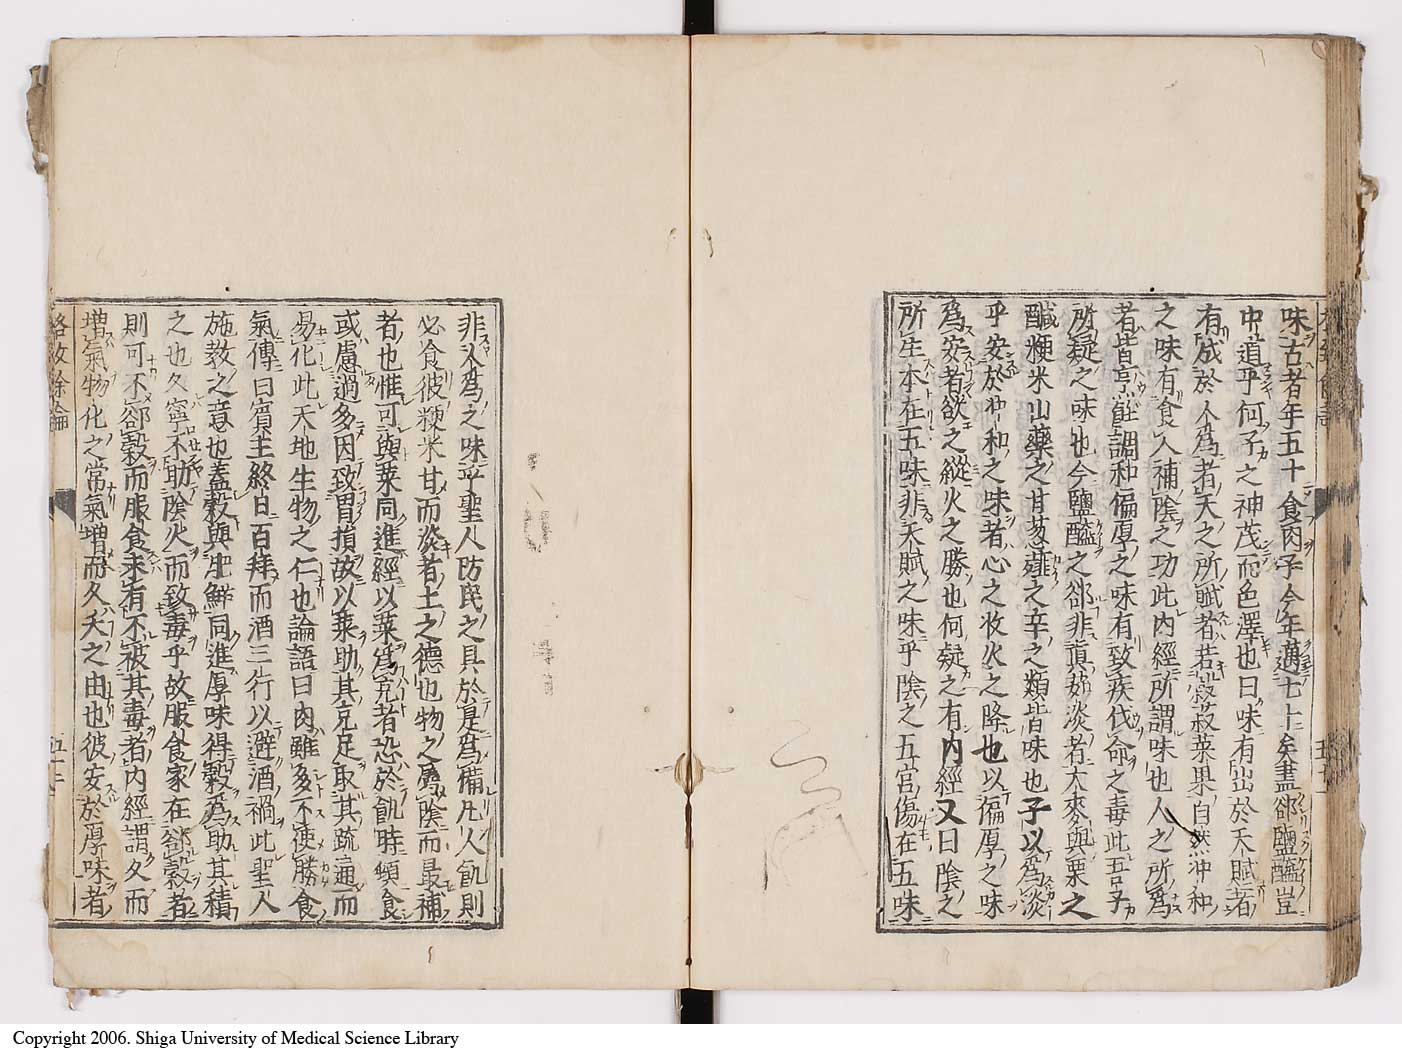 味古者年五十食肉子今年邁七十矣盡卻鹽醯豈
中道乎何子之神茂而色澤也曰味有出於天賦者
有成於人爲者天之所賦者若穀菽菜果自然冲和
之味有食人補陰之功此内經所謂味也人之所爲
者皆烹飪調和偏厚之味有致疾伐命之毒此吾子
所疑之味也今鹽醯之卻非真茹淡者大麥與栗之
鹹粳米山藥之甘葱薤之辛之類皆味也子以爲淡
乎安於冲和之味者心之收火之降也以偏厚之味
爲安者欲之縱火之勝也何疑之有内經又曰陰之
所生本在五味非天賦之味乎陰之五宮傷在五味
非人爲之味乎聖人防民之具於是爲備凡人飢則
必食彼粳米甘而淡者土之德也物之屬陰而最補
者也惟可與菜同進經以菜爲充者恐於飢時頓食
或慮過多因致胃損故以菜助其充足取其疏通而
易化此天地生物之仁也論語曰肉雖多不使勝食
氣傳曰賓主終日百拜而酒三行以避酒禍此聖人
施教之意也蓋穀與肥鮮同進厚味得穀爲助其積
之也久寧不助陰火而致毒乎故服食家在卻穀者
則可不卻穀而服食未有不被其毒者内經謂久而
增氣物化之常氣增而久夭之由也彼安於厚味者
格致餘論
Copyright 2006. Shiga University of Medical Science Library